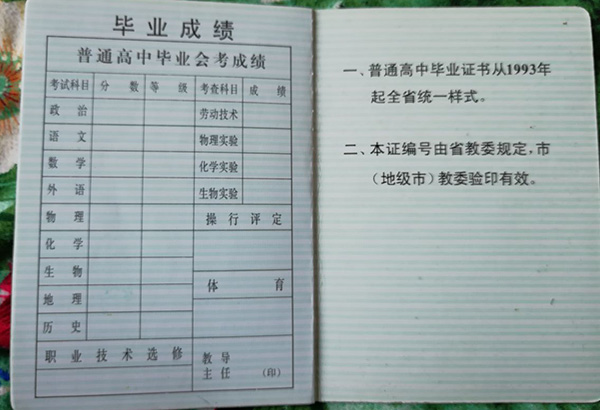 毕业成绩
普通高中毕业会考成绩
考试科目 分数 等级 考查科目 成绩
政治 劳动技术
语文 物理实验
数学 化学实验
外语 生物实验
物理 操行评定
化学
生物
地理 体育
历史
职业技术选修 教导
主任 (印)
一、普通高中毕业证书从1993年
起全省统一样式。
二、本证编号由省教委规定,市
(地级市)教委验印有效。